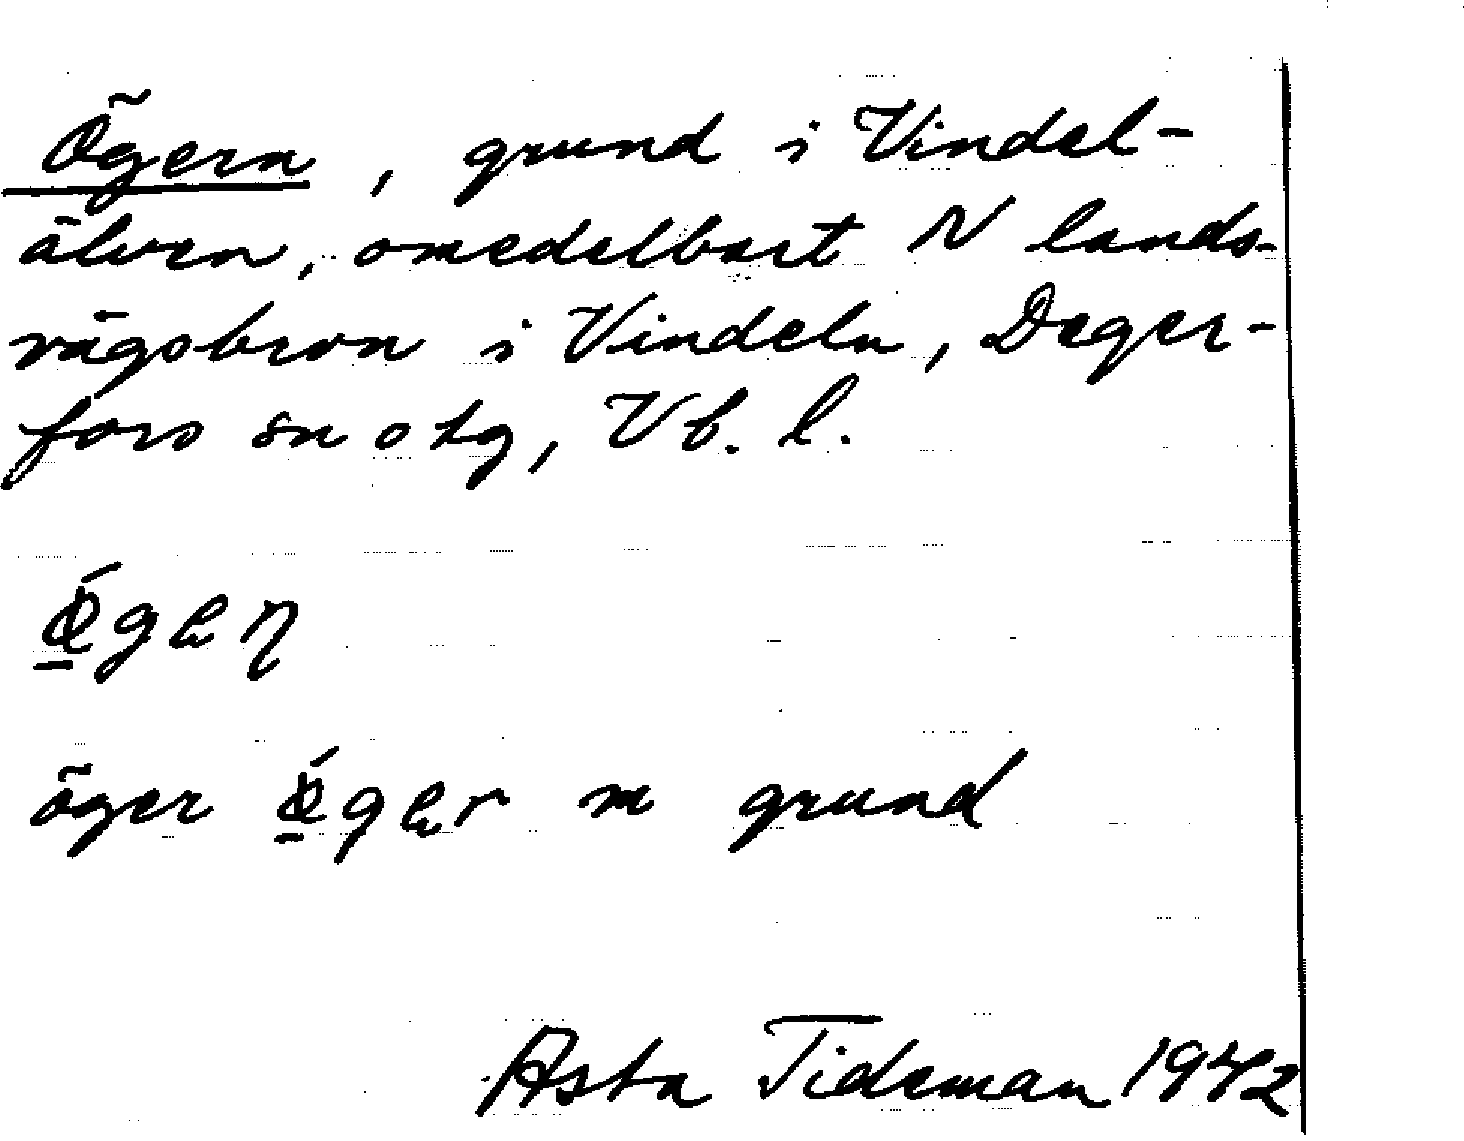 Ögern, grund i Vindel-
älven, omedelbart N lands-
vägsbron i Vindeln, Deger-
fors sn o tg, Vb. l.
öger
m grund
Asta Tideman 1942